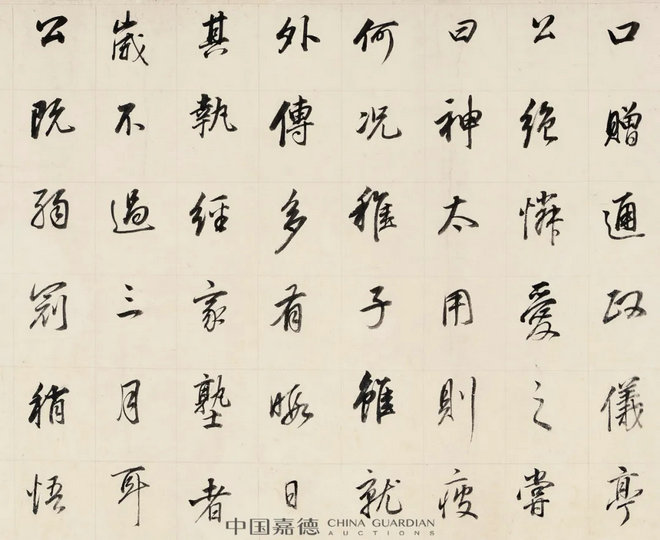 口贈通政儀亭
公絕憐愛之嘗
曰神太用則疲
何況稚子雖就
外傅多有暇日
其執經家塾者
歲不過三月耳
公既弱冠稍悟
中国嘉德 CHINA GUARDIAN
AUCTIONS